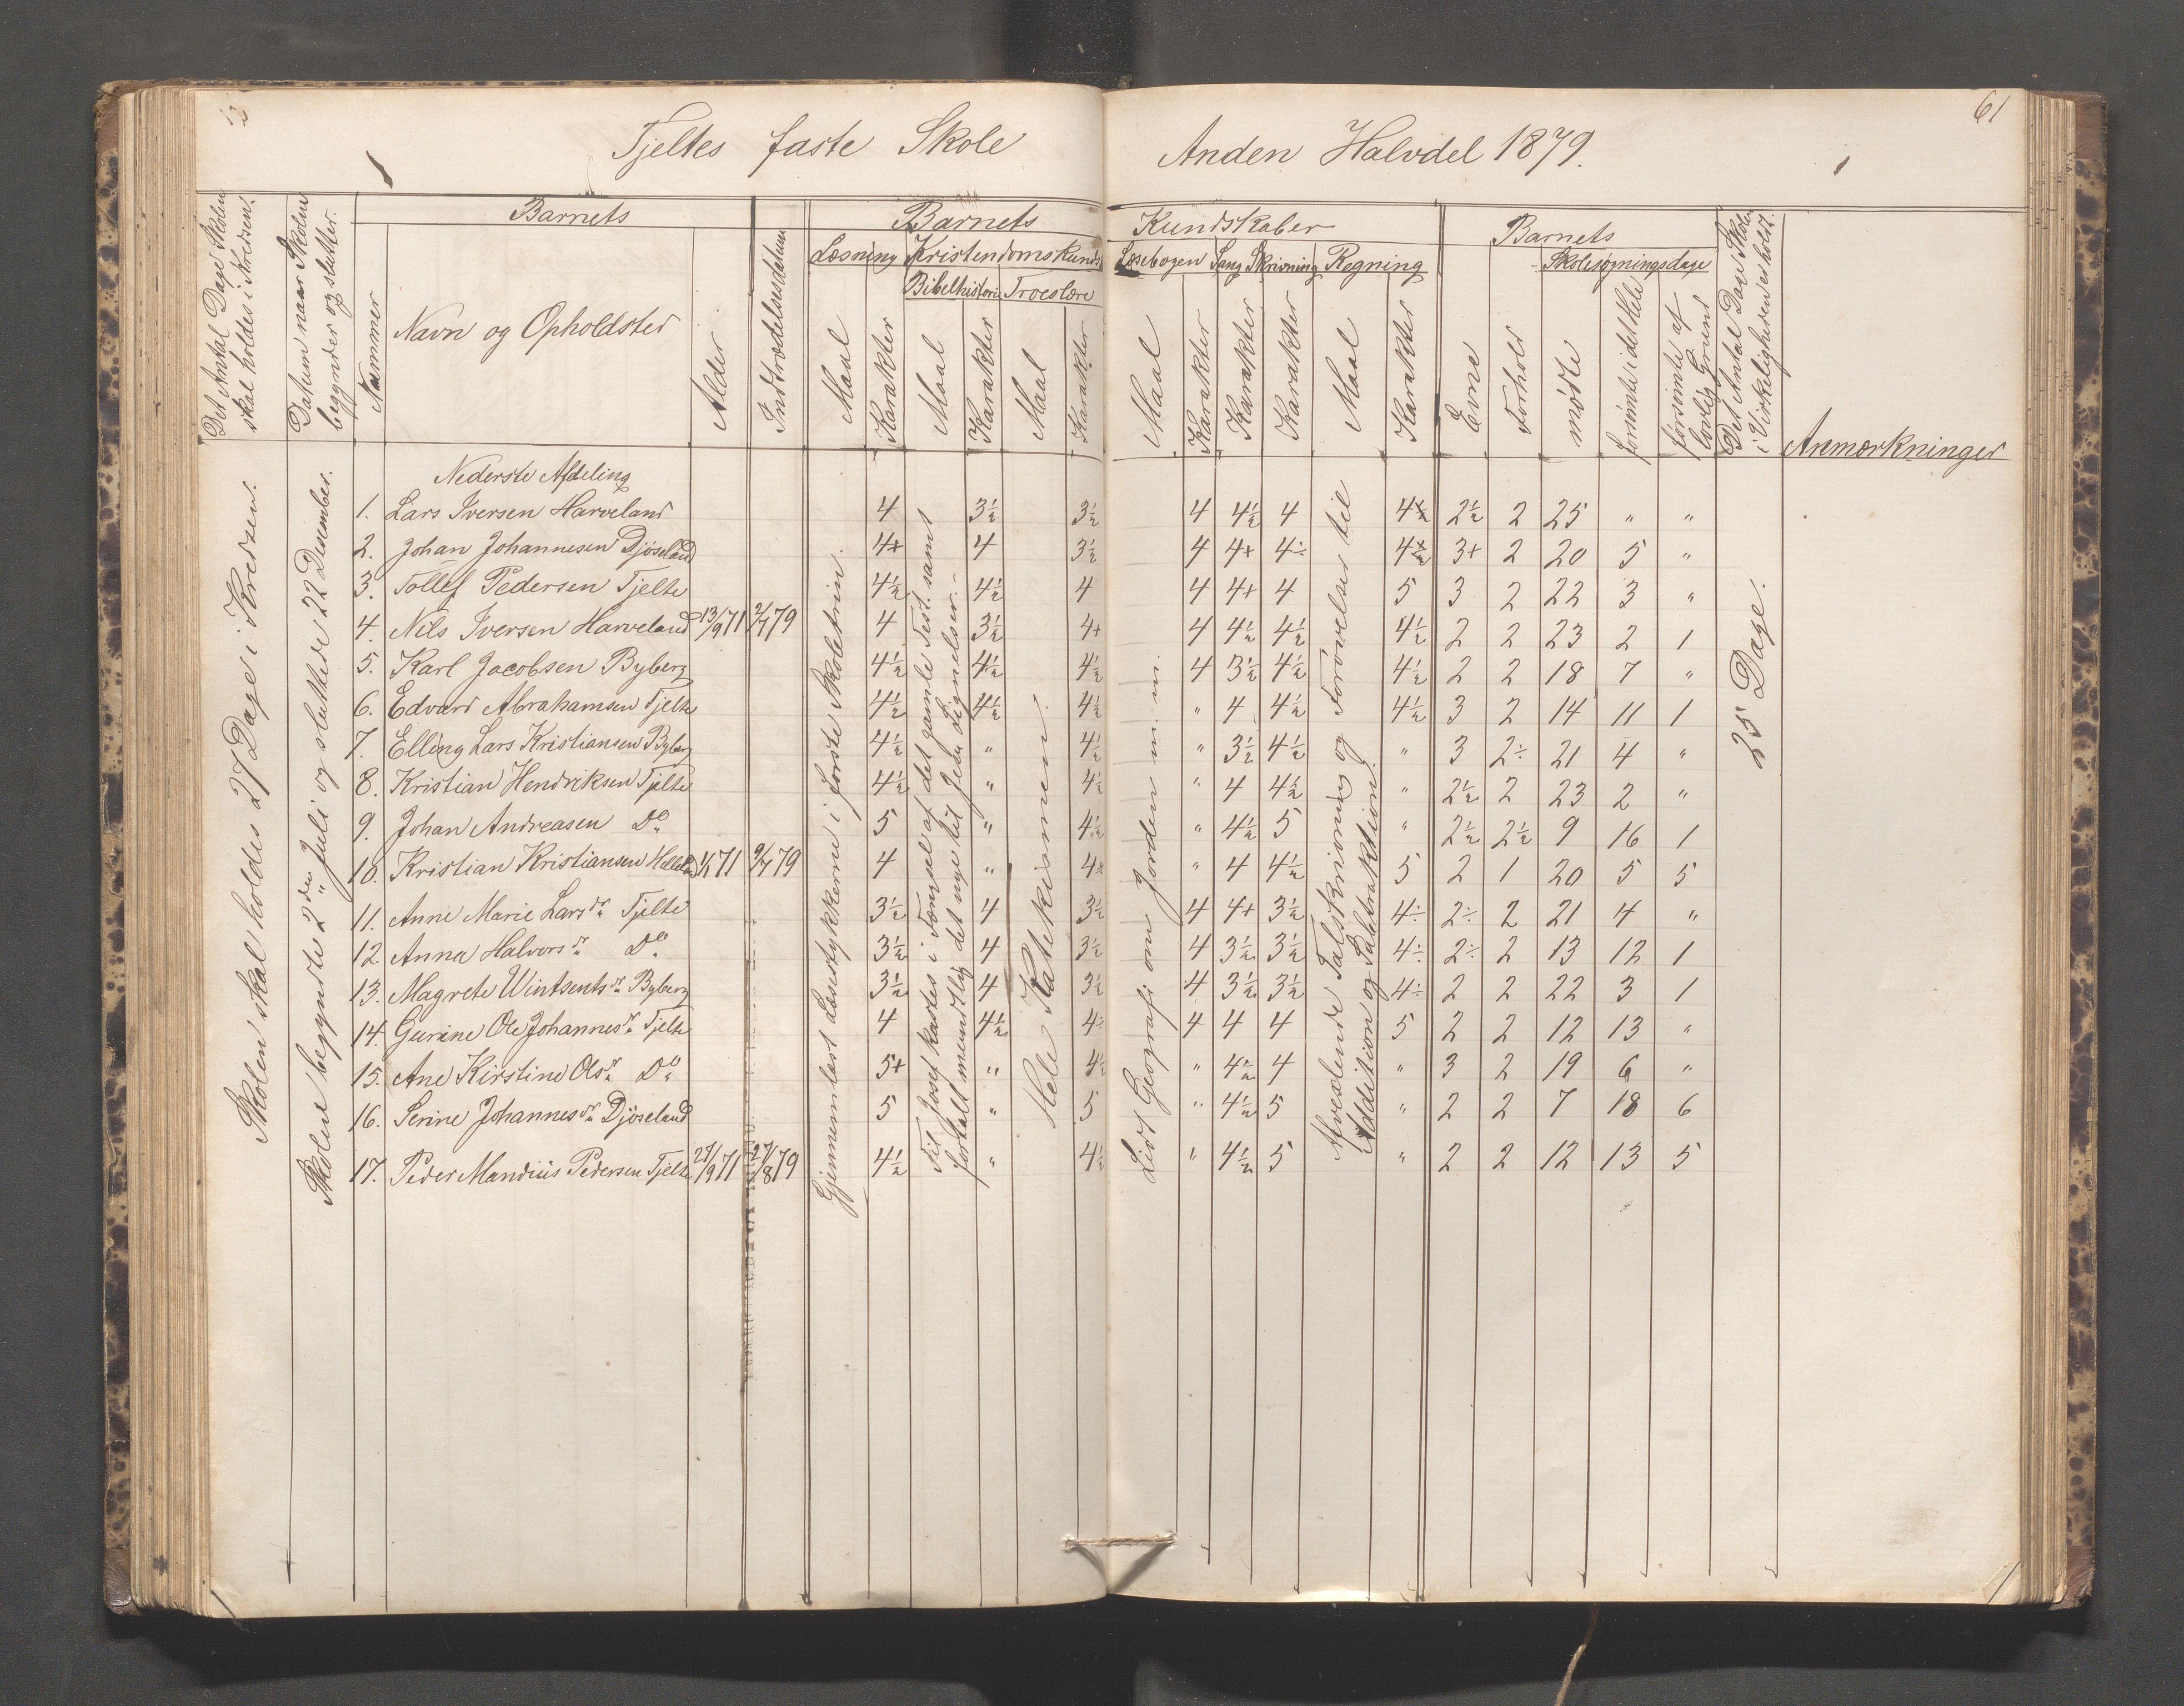 61
Tjeltes faste Skole Anden Halvdel 1879.
Det Antal Dage Skolen skal holdes i Kredsen.
Datum naar Skolen begynder og slutter.
Nummer
Barnets
Navn og Opholdsted
Alder
Indtrædelsesdatum
Barnets Kundskaber
Læsning Kristendomskunds Læsebogen Sang Skrivning Regning
Bibelhistorie Troeslære
Maal Karakter Maal Karakter Maal Karakter Maal Karakter Karakter Karakter Maal Karakter
Barnets
Evne Forhold
Skolesøgningsdage
mødte forsømte i det Hele forsømte af lovlig Grund
Det Antal Dage Skolen i Virkeligheden er holdt.
Anmærkninger
Skolen skal holdes 27 Dage i Kredsen.
Skolen begyndte 2den Juli og sluttede 22 December.
Gjennemlæst Læsestykkerne i første Skoletrin.
Til Josef kastes i Fængsel af det gamle Test. samt
fortalt mundtlig det nye til Jesu Lignelser.
Hele Katekismen.
Lidt Geografi om Jorden m. m.
Afvexlende Talskrivning og Forøvelser til
Addition og Subtraktion.
25 Dage.
Nederste Afdeling
1. Lars Iversen Harveland 4 3½ 3½ 4 4½ 4 4½ 2½ 2 25 " "
2. Johan Johannesen Djøseland 4+ 4 3½ 4 4+ 4÷ 4½ 3+ 2 20 5 "
3. Tollef Pedersen Tjelte 4½ 4½ 4 4 4+ 4 5 3 2 22 3 "
4. Nils Iversen Harveland 13/9 71 2/7 79 4 3½ 4+ 4 4½ 4½ 4½ 2 2 23 2 1
5. Karl Jacobsen Byberg 4½ 4½ 4½ 4 3½ 4½ 4½ 2 2 18 7 "
6. Edvard Abrahamsen Tjelte 4½ 4½ 4½ " 4 4½ 4½ 3 2 14 11 1
7. Elling Lars Kristiansen Byberg 4½ " 4½ " 3½ 4½ " 3 2÷ 21 4 "
8. Kristian Hendriksen Tjelte 4½ " 4½ " 4 4½ " 2½ 2 23 2 "
9. Johan Andreasen Do 5 " 4½ " 4½ 5 " 2½ 2½ 9 16 1
10. Kristian Kristiansen 71 9/7 79 4 " 4+ " 4 4½ 5 2 1 20 5 5
11. Anne Marie Larsdr Tjelte 3½ 4 3½ 4 4+ 3½ 4÷ 2÷ 2 21 4 "
12. Anna Halvorsdr Do 3½ 4 3½ 4 3½ 3½ 4÷ 2÷ 2 13 12 1
13. Magrete Wintsentsdr Byberg 3½ 4 3½ 4 3½ 3½ 4÷ 2 2 22 3 1
14. Gurine Ole Johannesdr Tjelte 4 4½ 4÷ 4 4 4 5 2 2 12 13 "
15. Ane Kirstine Olsdr Do 5+ " 4½ " 4½ 4 " 3 2 19 6 "
16. Serine Johannesdr Djøseland 5 " 5 " 4½ 5 " 2 2 7 18 6
17. Peder Mandius Pedersen Tjelte 27/9 71 27/8 79 4½ " 4½ " 4½ 5 " 2 2 12 13 5